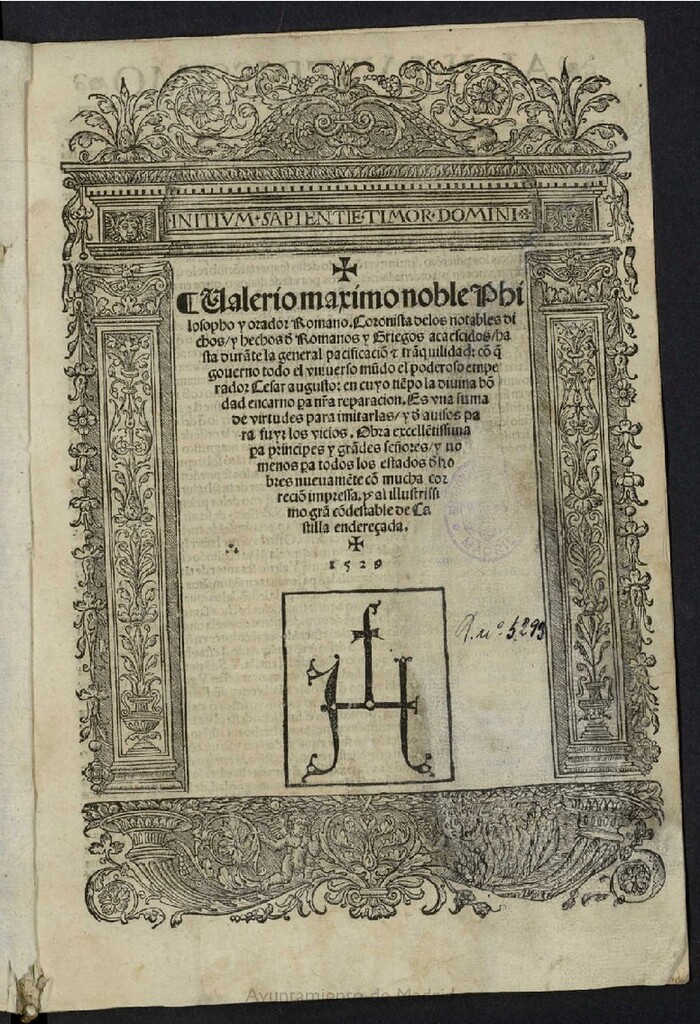 INITIVM·SAPIENTIE·TIMOR·DOMINI
✠
¶ Ualerio maximo noble Phi
losopho y orador Romano. Coronista delos notables di
chos/y hechos đ Romanos y Griegos acaescidos/ha
sta durãte la general pacificaciõ ⁊ trãquilidad: cõ q̃
governo todo el vniuerso mũdo el poderoso empe
rador Cesar augusto: en cuyo tiẽpo la diuina bõ
dad encarno pa nr̃a reparacion. Es vna suma
de virtudes para imitarlas/y đ auisos pa
ra fuyr los vicios. Obra excellẽtissima
pa principes y grãdes señores/y no
menos pa todos los estados đ ho
bres nueuamẽte cõ mucha cor
reciõ impressa. y al illustrissi
mo grã cõdestable de Ca
stilla endereçada.
✠
1529
R. nº 5293
MADRID
Ayuntamiento de Madrid